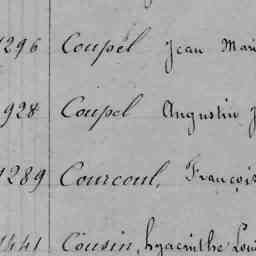 1296 Coupel Jean Mari
928 Coupel Augustin J
1289 Courcoul, François
1441 Cousin, hyacinthe Loui